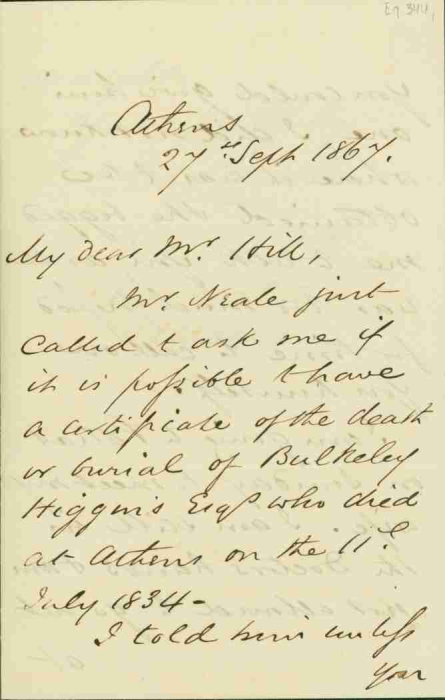 En 344,
Athens
27th Sept 1867.
My dear Mr. Hill,
Mr. Neale just
called t ask me if
it is possible t have
a certificate of the death
or burial of Bulkeley
Higgins Esqr who died
at Athens on the 11th
July 1834 -
I told him unless
you